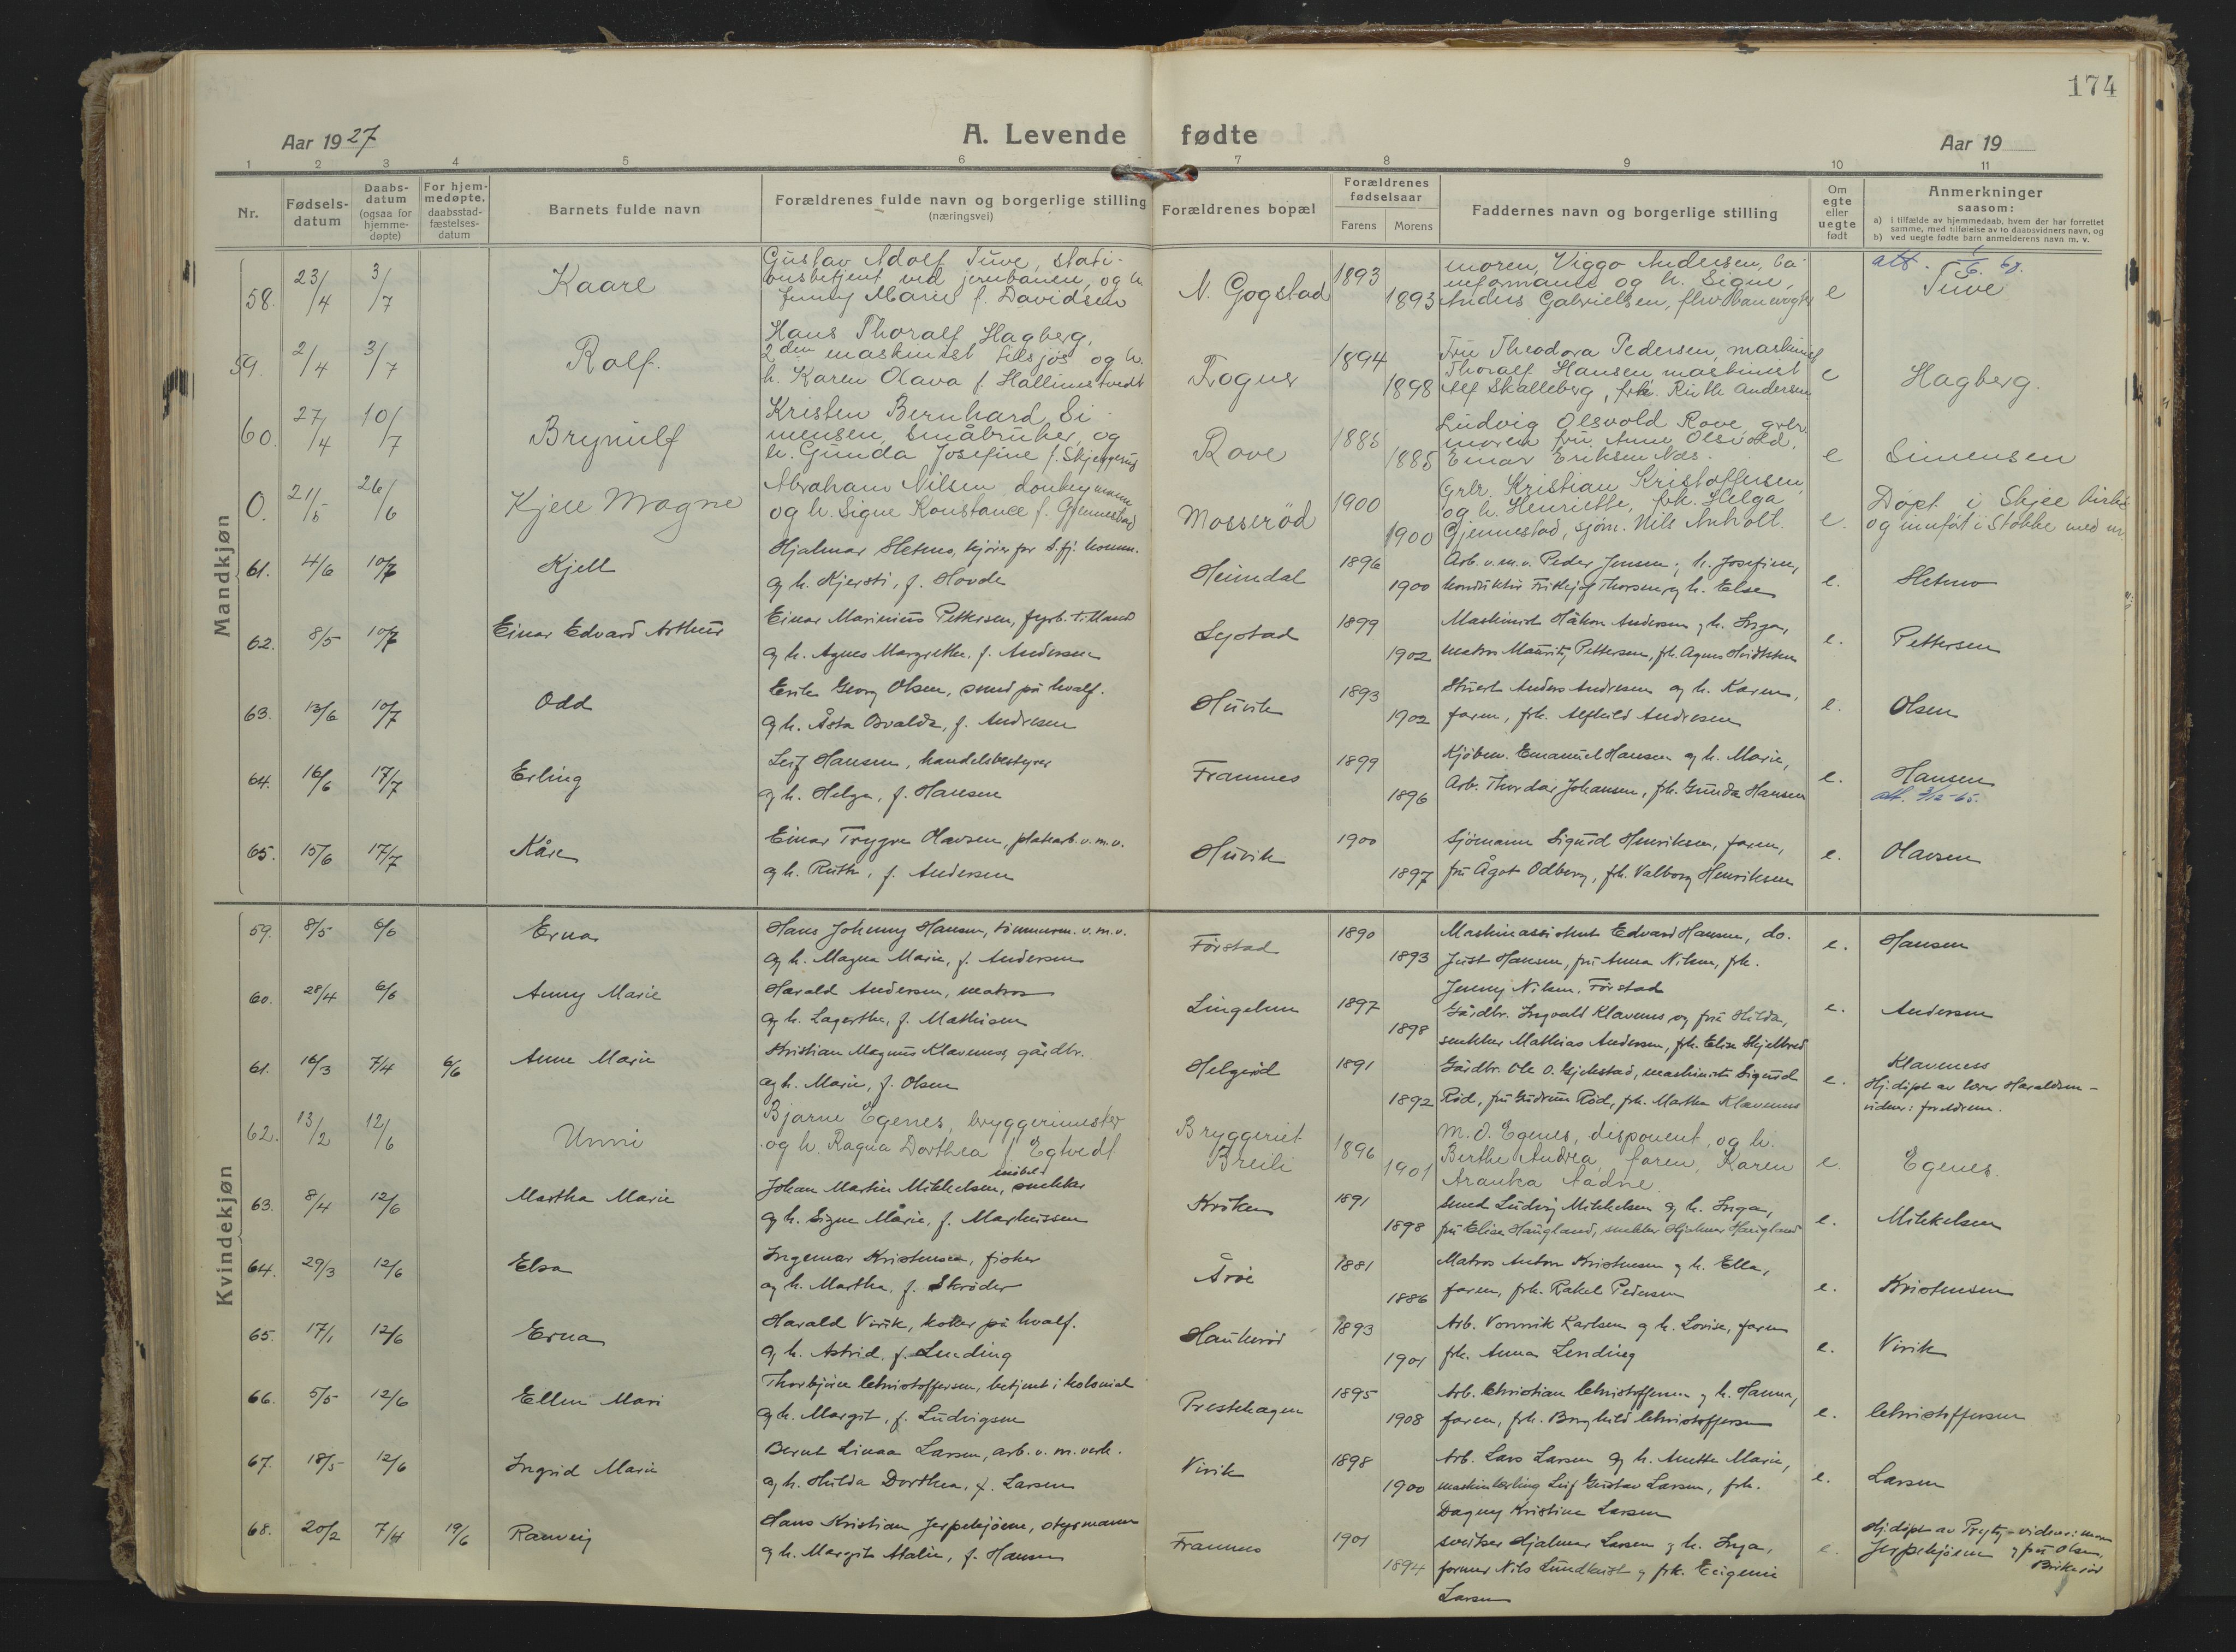 174
Aar 1927
A. Levende fødte
Aar 19
1 2 3 4 5 6 7 8 9 10 11
Nr.
Fødsels-
datum
Daabs-
datum
(ogsaa for
hjemme-
døpte)
For hjem-
medøpte,
daabsstad-
fæstelses-
datum
Barnets fulde navn
Forældrenes fulde navn og borgerlige stilling
(næringsvei)
Forældrenes bopæl
Forældrenes
fødselsaar
Farens Morens
Faddernes navn og borgerlige stilling
Om
egte
eller
uegte
født
Anmerkninger
saasom:
a) i tilfælde av hjemmedaab, hvem der har forrettet
samme, med tilføielse av to daabsvidners navn, og
b) ved uegte fødte barn anmelderens navn m. v.
Mandkjøn
58. 23/4 3/7 Kaare
Gustav Adolf Tuve, stati-
onsbetjent ved jernbanen, og h.
Jenny Marie f. Davidsen
N. Gogstad 1893 1893
moren, Viggo Andersen, ba-
neformand og h. Signe,
Anders Gabrielsen,
e Tuve
59. 2/4 3/7 Rolf.
Hans Thoralf Hagberg,
2den maskinist tilsjøs og h.
h. Karen Olava f. Hallimstvedt
Fogner 1894 1898
Fru Theodora Pedersen, maskinist
Thoralf Hansen maskinist
Alf Skalleberg, frk. Ruth Andersen
e Hagberg.
60. 27/4 10/7 Brynulf
Kristen Bernhard Si-
mensen, småbruker, og
h. Gunda Josefine f. Skjeggerød
Rove 1885 1885
Ludvig Olsvold Rove, grbr.
moren fru Anne Olsvold,
Einar Eriksen Nes.
e Simensen
0. 21/5 26/6 Kjell Magne
Abraham Nilsen donkeymann
og h. Signe Konstance f. Gjennestad
Mosserød 1900 1900
Grbr. Kristian Kristoffersen,
og h. Henriette, frk. Helga
Gjennestad, sjøm. Nils Anholt.
e. Døpt i Skjee kirke
og innført i Stokke med nr.
61. 4/6 10/7 Kjell
Hjalmar Sletmo, kjører for S.fj. komm.
og h. Kjersti, f. Hovde
Heimdal 1896 1900
Arb. v. m. v. Peder Jensen, h. Josefine,
konduktør Fritkjof Thorsen og h. Else
e. Sletmo
62. 8/5 10/7 Einar Edvard Arthur
Einar Marinius Pettersen, fyrb. tillands
og h. Agnes Margrethe, f. Andersen
1899 1902
Maskinist Håkon Andersen og h. Inga,
matros Mauritz Pettersen, frk. Agnes
e. Pettersen
63. 13/6 10/7 Odd
Erik Georg Olsen, smed på hvalf.
og h. Åsta Osvalda, f. Andresen
Huvik 1893 1902
Stuert Anders Andresen og h. Karen,
faren, frk. Alfhild Andresen
e. Olsen
64. 16/6 17/7 Erling
Leif Hansen, handelsbestyrer
og h. Helga, f. Hansen
Framnes 1899 1896
Kjøbm. Emanuel Hansen og h. Marie,
Arb. Thordar Johansen, frk. Gunda Hansen
e. Hansen
att. 3/12-65.
65. 15/6 17/7 Kåre
Einar Trygve Olavsen, platearb. v. m. v.
og h. Ruth, f. Andersen
Huvik 1900 1897
Sjømann Sigurd Henriksen, faren,
fru Ågot Odberg, frk. Valborg Henriksen
e. Olavsen
Kvindekjøn
59. 8/5 6/6 Erna
Hans Johnny Hansen, tømmerm. v. m. v.
og h. Magna Marie, f. Andersen
Førstad 1890 1893
Maskinassistent Edvard Hansen, do.
Just Hansen, fru Anna Nilsen, frk.
Jenny Nilsen, Førstad
e. Hansen
60. 28/4 6/6 Anny Marie
Harald Andersen, matros
og h. Lagertha, f. Mathisen
Lingelem 1897 1898
Gårdbr. Ingvald Klavenes og fru Hilda,
snekker Mathias Andersen, frk. Elise Skjelbred
e. Andersen
61. 16/3 7/4 6/6 Anne Marie
Kristian Magnus Klaveness, gårdbr.
og h. Marie, f. Olsen
Helgerød 1891 1892
Gårdbr. Ole O. Gjekstad, maskinist Sigurd
Rød, fru Gudrun Rød, frk. Martha Klavenes
e. Klaveness
Hj. døpt av lærer Haraldsen -
vidner: foreldrene.
62. 13/2 12/6 Unni
Bjarne Egenes, bryggerimester
og h. Ragna Dorthea f. Egtvedt
Bryggeriet
Breili 1896 1901
M. O. Egenes, disponent, og h.
Berthe Andrea, faren, Karen
Aranka Aadne
e. Egenes.
63. 8/4 12/6 Martha Marie
Johan Martin Mikkelsen, møbelsnekker
og h. Signe Marie, f. Markussen
Kroken 1891 1898
Smed Ludvig Mikkelsen og h. Inga,
fru Elise Haugland, snekker Hjalmar Haugland
e. Mikkelsen
64. 29/3 12/6 Elsa
Ingemar Kristensen, fisker
og h. Martha, f. Skrøder
Årøe 1881 1886
Matros Anton Kristensen og h. Ella,
faren, frk. Rakel Pedersen
e. Kristensen
65. 17/1 12/6 Erna
Harald Virik, koker på hvalf.
og h. Astrid, f. Lending
Haukerød 1893 1901
Arb. Vonnik Karlsen og h. Lovise, faren
frk. Anna Lending
e. Virik
66. 5/5 12/6 Ellen Mari
Thorbjørn Christoffersen, betjent i kolonial
og h. Margit, f. Ludvigsen
Prestehagen 1895 1908
Arb. Christian Christoffersen og h. Hanna,
faren, frk. Borghild Christoffersen
e. Christoffersen
67. 18/5 12/6 Ingrid Marie
Bernt Linaa Larsen, arb. v. m. verk.
og h. Hilda Dorthea, f. Larsen
Virik 1898 1900
Arb. Lars Larsen og h. Anette Marie,
maskinlærling Leif Gustav Larsen, frk.
Dagny Kristine Larsen
e. Larsen
68. 20/2 7/4 19/6 Ranveig
Hans Kristian Jerpekjøenn, styrmann
og h. Margit Atalie, f. Hansen
Framnes 1901 1894
Sveitser Hjalmar Larsen og h. Inga,
former Nils Lundkvist og frk. Eugenie
Larsen
e. Hj. døpt av Prytz - vidner: moren
Jerpekjøenn og fru Olsen,